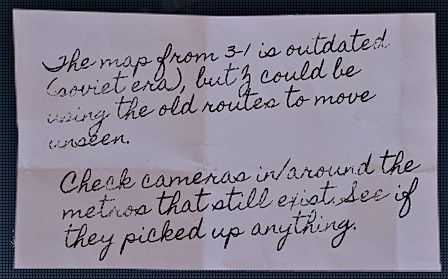 The map from 3-1 is outdated
(soviet era), but Z could be
using the old routes to move
unseen.
Check cameras in/around the
metros that still exist. See if
they picked up anything.